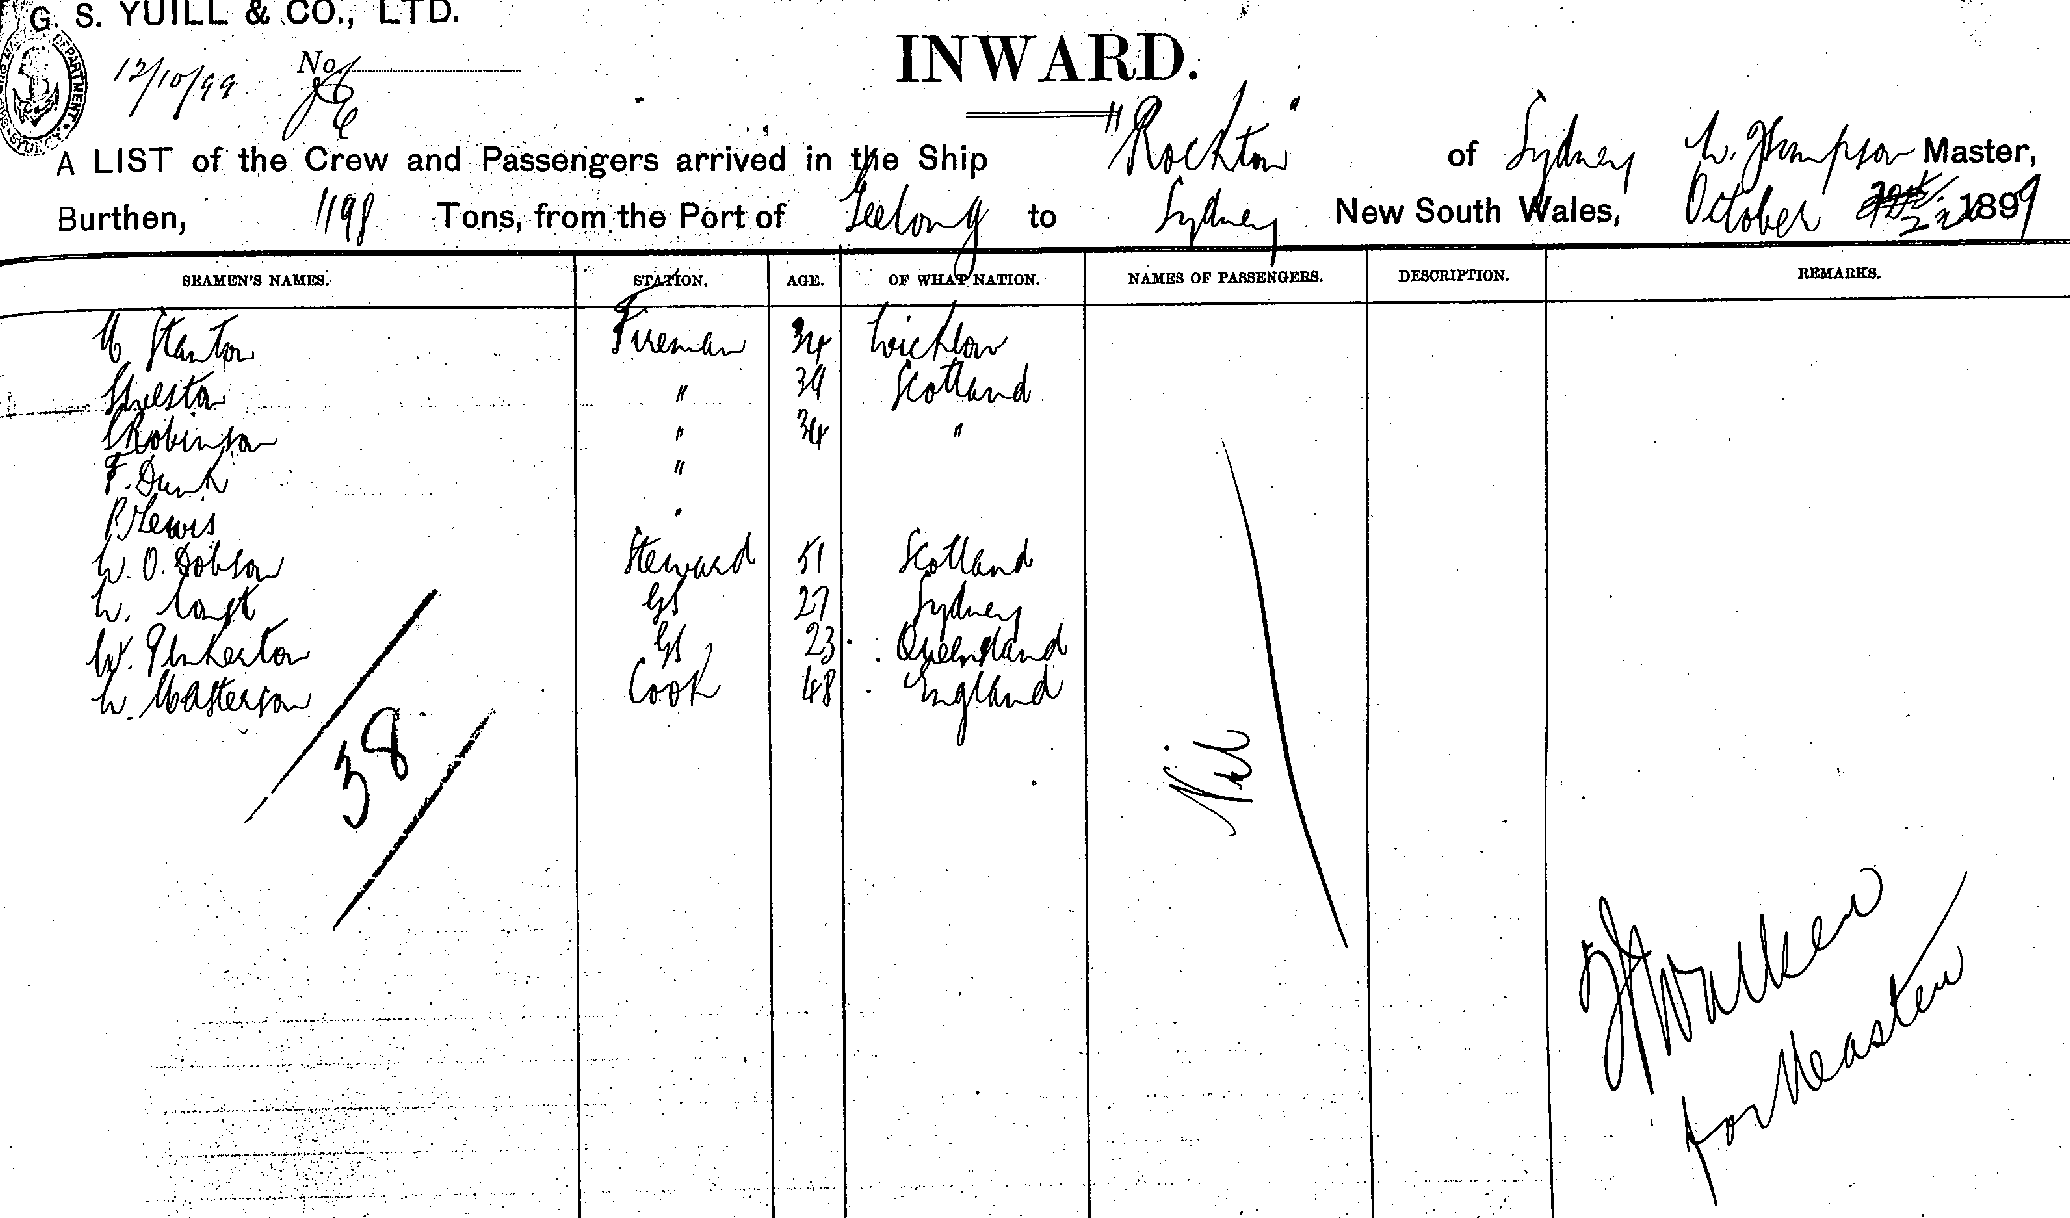 G. S. YUILL & CO., LTD.
12/10/99 No.
INWARD.
A LIST of the Crew and Passengers arrived in the Ship "Rockton" of Sydney W. Thompson Master,
Burthen, 1198 Tons, from the Port of Geelong to Sydney New South Wales, October 1899
SEAMEN'S NAMES. STATION. AGE. OF WHAT NATION. NAMES OF PASSENGERS. DESCRIPTION. REMARKS.
M Stanton Fireman 34 Wicklow
" 39 Scotland
Robinson " 34 "
F. Dunk "
P Lewis "
W. O. Dobson Steward 51 Scotland
W. 27 Sydney
W. Pinkerton 23 Queensland
W. Masterson Cook 48 England
38
Nil
Walker
for Master